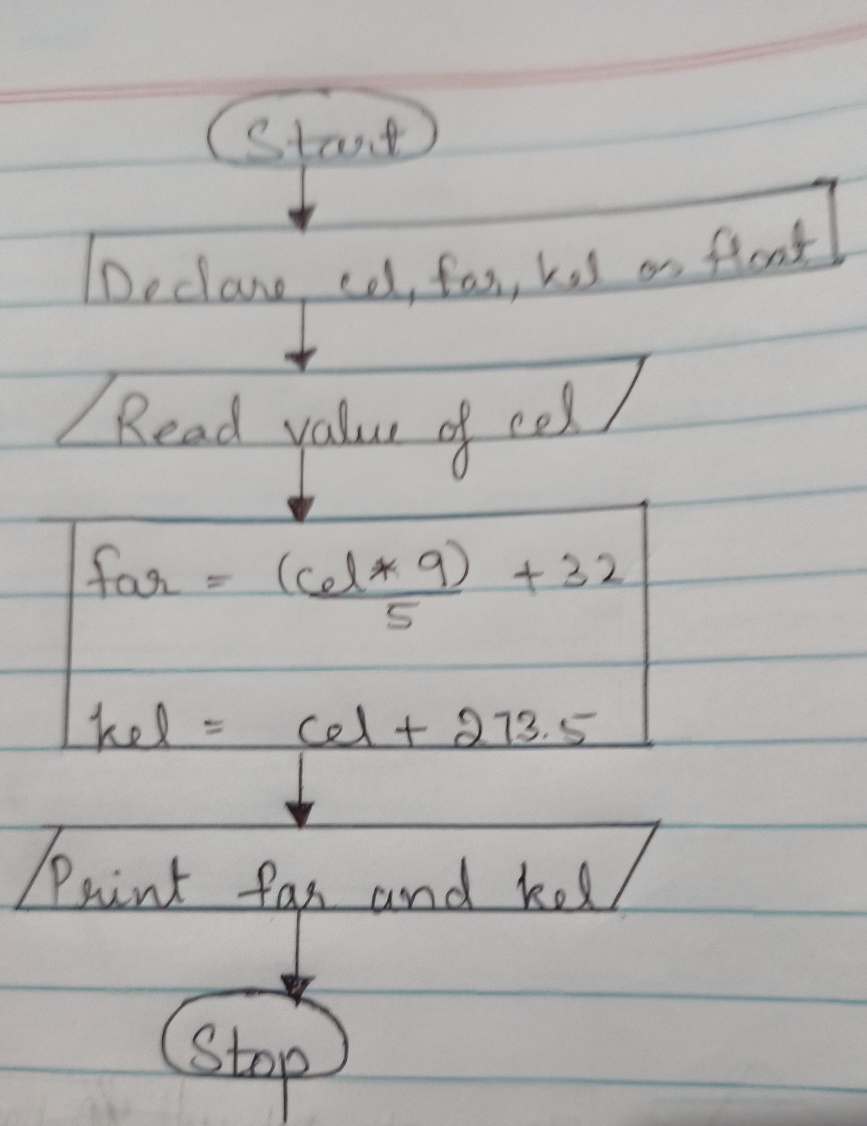 Start
Declare cel, far, kel as float
Read value of cel
far = (cel * 9) + 32
5
kel = cel + 273.5
Print far and kel
Stop